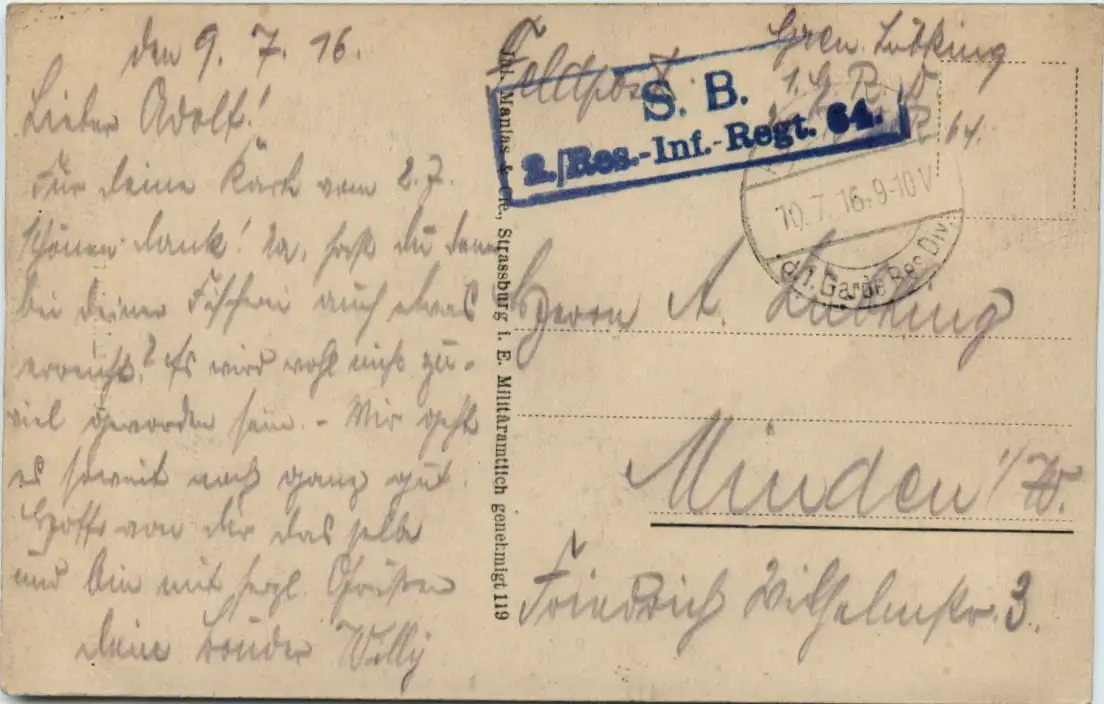 den 9. 7. 16.
Lieber Adolf!
Für deine Karte vom 2.7.
schönen Dank! Na, hast du denn
bei deiner Fischerei auch etwas
erreicht? Es wird wohl nicht zu-
viel geworden sein. - Mir geht
es soweit noch ganz gut.
Hoffe von dir das selbe
und bin mit herzl. Grüßen
dein Bruder Willy
Inh. Manias & Cie., Strassburg i. E. Militäramtlich genehmigt 119
Feldpost
Gren. Lübking
1. G. R. D.
R 64.
S. B.
2./Res.-Inf.-Regt. 64.
10.7.16.9-10V
d. 1. Garde Res. Div.
Herrn A. Lübking
Minden i/W.
Friedrich Wilhelmstr. 3.